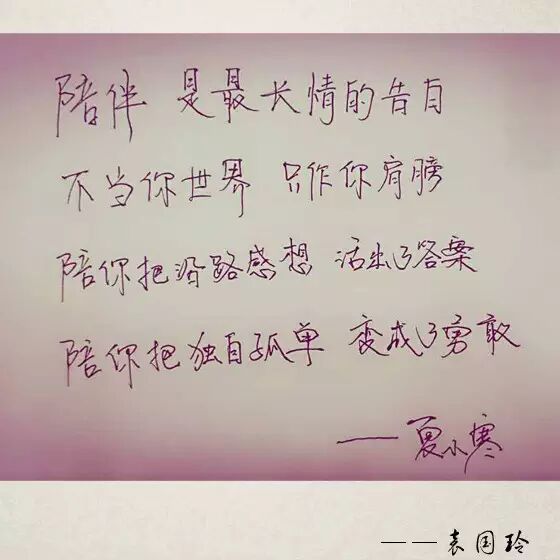 陪伴 是最长情的告白
不当你世界 只作你肩膀
陪你把沿路感想 活出了答案
陪你把独自孤单 变成了勇敢
——夏小寒
——袁国玲